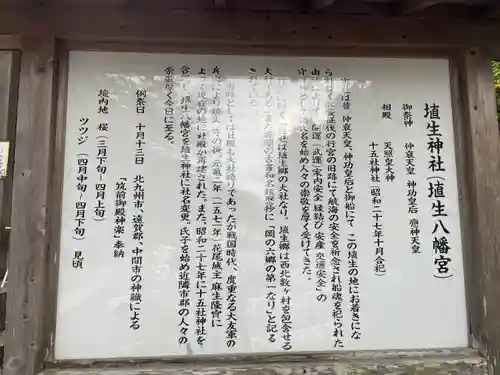 埴生神社（埴生八幡宮）
御祭神　仲哀天皇　神功皇后　應神天皇
相殿　天照皇大神
十五社神社（昭和二十七年十月合祀）
は昔　仲哀天皇、神功皇后と御船にて　この埴生の地にお着きにな
の行宮の旧跡にて航海の安全を祈念され船魂を祀られた
開運（武運）家内安全　縁結び　安産　交通安全の
を始め人々の崇敬を厚く受けてきた。
社は埴生郷の大社なり、埴生郷は西北数ヶ村を包含せる
「岡の六郷の第一なり」と記る
されている。
としては社殿も大社造りであったが戦国時代、度重なる大友軍の
兵
元亀二年（一五七一年）花尾城主　麻生隆實に
よって現在の地に社殿が再建された。また、昭和二十七年に十五社神社を
合祀し、埴生八幡宮を埴生神社に社名変更。氏子を始め近隣市郡の人々の
崇敬厚く今日に至る。
例祭日　十月十三日　北九州市、遠賀郡、中間市の神職による
「筑前御殿神楽」奉納
境内地　桜（三月下旬〜四月上旬）
ツツジ（四月中旬〜四月下旬）　見頃